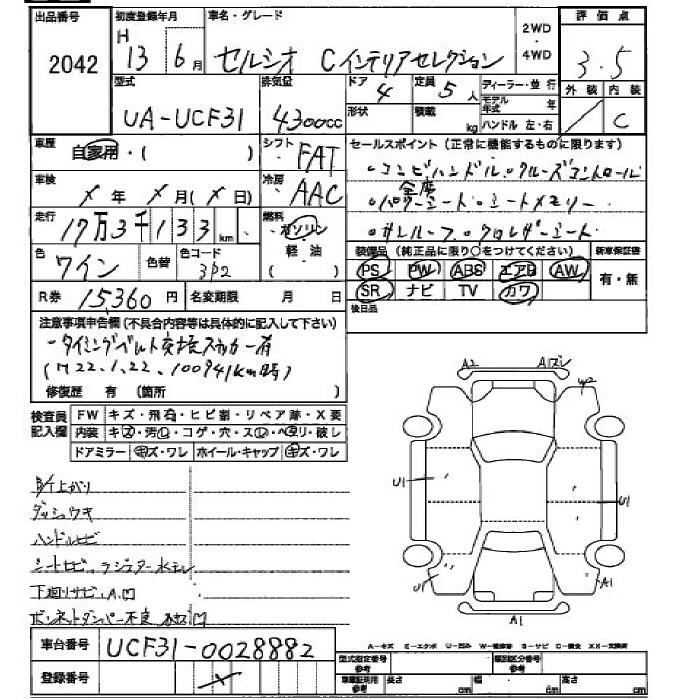 出品番号
2042
初度登録年月
H
13 6月
車名・グレード
セルシオ Cインテリアセレクション
2WD
・
4WD
評価点
3.5
外装 内装
／ C
型式
UA-UCF31
排気量
4300cc
ドア
4
定員
5人
ディーラー・並行
モデル年式 年
ハンドル 左・右
形状
積載
kg
車歴
自家用・( )
シフト
FAT
セールスポイント(正常に機能するものに限ります)
・コンビハンドル・クルーズコントロール
全席
・パワーシート・シートメモリー
・サンルーフ・クロレザーシート
車検
× 年 × 月(× 日)
冷房
AAC
走行
17万3千133km
燃料
ガソリン
軽・油
( )
色
ワイン
色替
色コード
3P2
装備品(純正品に限り○をつけてください)
新車保証書
PS PW ABS エアB AW
SR ナビ TV カワ
有・無
R券 15,360円
名変期限 月 日
後日品
注意事項申告欄(不具合内容等は具体的に記入して下さい)
・タイミングベルト交換ステッカー有
(H22.1.22. 100941km時)
修復歴 有 (箇所 )
検査員
記入欄
FW キズ・飛石・ヒビ割・リペア跡・X要
内装 キズ・汚レ・コゲ・穴・スレ・ヘタリ・破レ
ドアミラー キズ・ワレ ホイール・キャップ キズ・ワレ
A2
A1
W2
U1
U1
U1
A1
A1
ダッシュウキ
ハンドルヒビ
シートヒビ、ラジエター水モレ
下廻リサビ、A凹
ボンネットダンパー不良
車台番号
UCF31-0028882
登録番号
×
A-キズ E-エクボ U-凹み W-補修跡 S-サビ C-腐食 XX-交換済
型式指定番号
参考
類別区分番号
参考
車庫証明用
参考
長さ cm
幅 cm
高さ cm